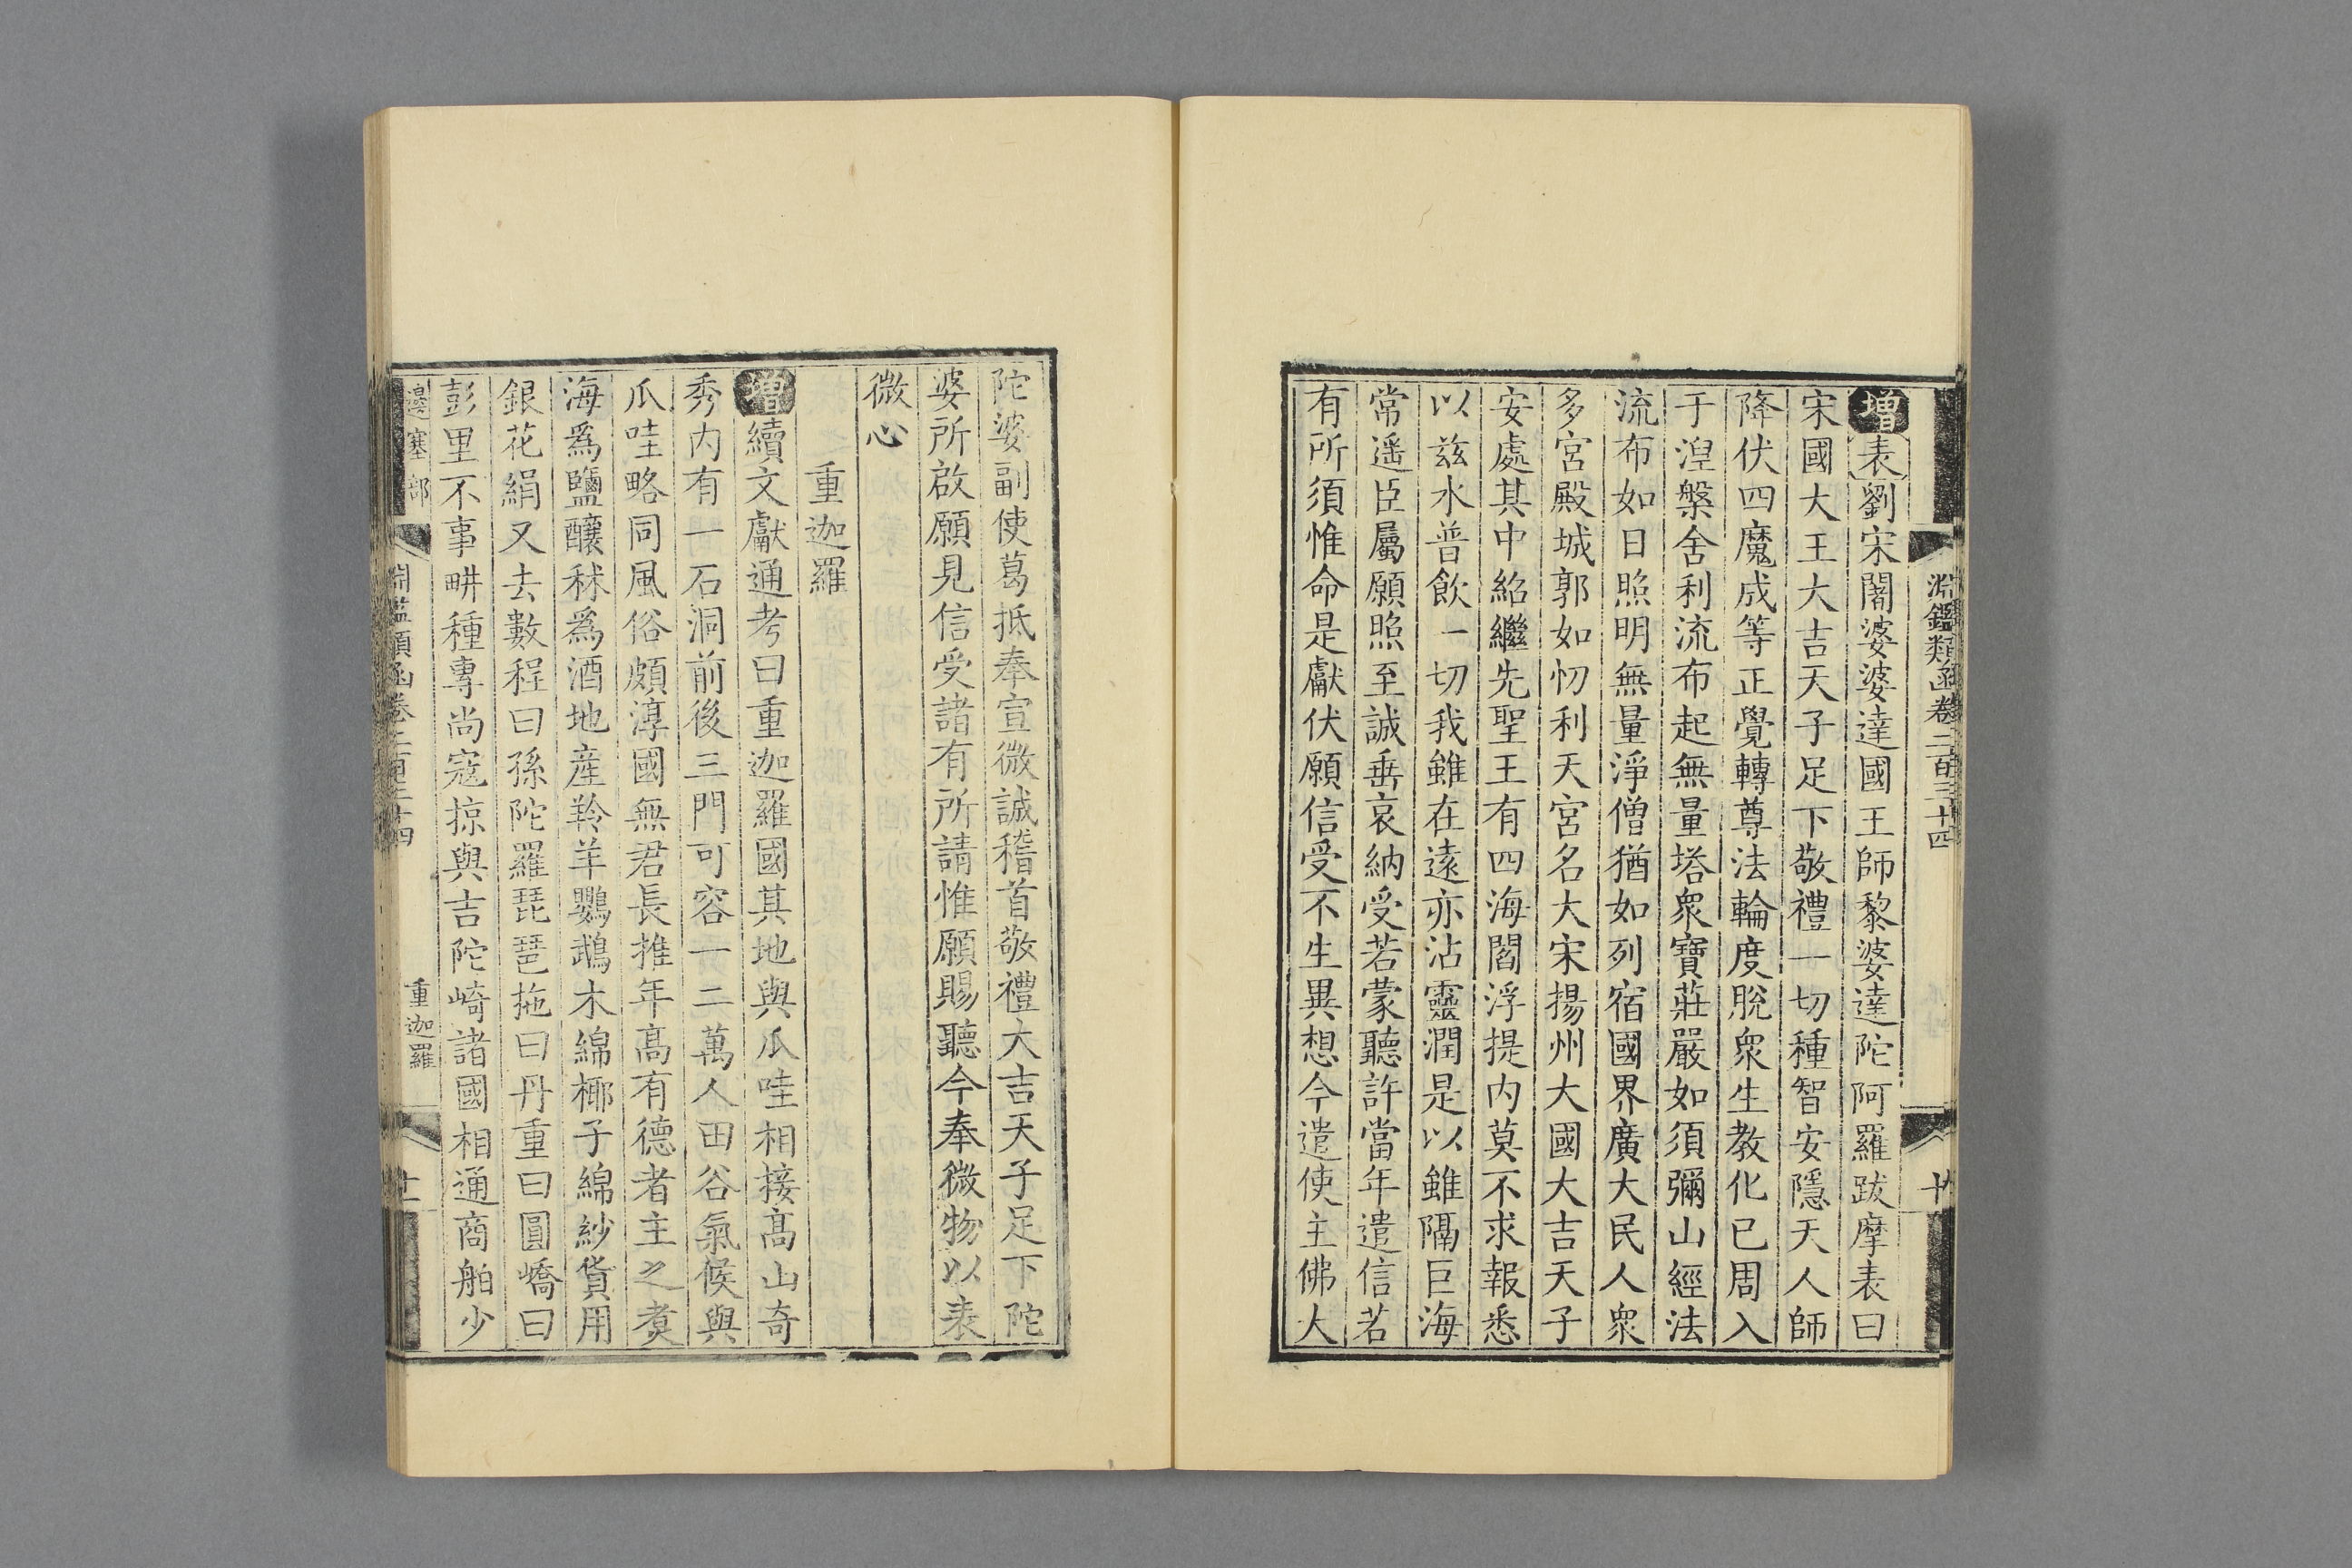 淵鑑類函卷二百三十四
十
增表劉宋闍婆婆達國王師黎婆達陀阿羅跋摩表曰
宋國大王大吉天子足下敬禮一切種智安隱天人師
降伏四魔成等正覺轉尊法輪度脫衆生教化已周入
于湼槃舍利流布起無量塔衆寶莊嚴如須彌山經法
流布如日照明無量淨僧猶如列宿國界廣大民人衆
多宮殿城郭如忉利天宮名大宋揚州大國大吉天子
安處其中紹繼先聖王有四海閻浮提内莫不求報悉
以兹水普飲一切我雖在遠亦沾靈潤是以雖隔巨海
常遥臣屬願照至誠垂哀納受若蒙聽許當年遣信若
有所須惟命是獻伏願信受不生異想今遣使主佛大
陀婆副使葛抵奉宣微誠稽首敬禮大吉天子足下陀
婆所啟願見信受諸有所請惟願賜聽今奉微物以表
微心
重迦羅
增續文獻通考曰重迦羅國其地與瓜哇相接高山奇
秀内有一石洞前後三門可容一二萬人田谷氣候與
瓜哇略同風俗頗淳國無君長推年高有德者主之煑
海爲鹽釀秫爲酒地産羚羊鸚鵡木綿椰子綿紗貨用
銀花絹又去數程曰孫陀羅琵琶拖曰丹重曰圓嶠曰
彭里不事畊種專尚寇掠與吉陀崎諸國相通商舶少
邊塞部
淵鑑類函卷二百三十四
重迦羅
十一